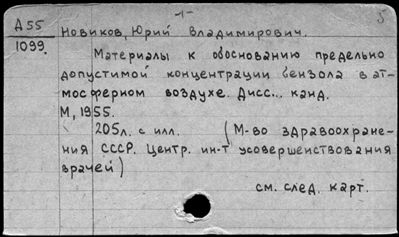 А 55
1099.
Новиков, Юрий Владимирович.
Материалы к обоснованию предельно
допустимой концентрации бензола в ат-
мосферном воздухе. Дисс... канд.
М, 1955.
205л. с илл. (М-во здравоохране-
ния СССР. Центр. ин-т усовершенствования
врачей)
см. след. карт.